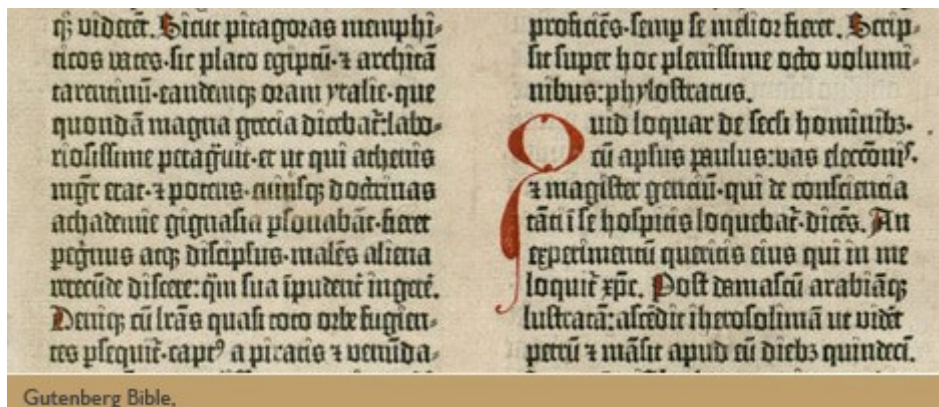 q; videret. Sicut pitagoras memphi-
ticos vates. sic plato egiptū. ⁊ architā
tarentinū. eandemq; oram ytalie. que
quondā magna grecia dicebat̄: labo-
riosissime peragũit. et ut qui athenis
mgr̄ erat. ⁊ potens. cuiusq; doctrinas
achademie gignasia ꝑsonabāt. fieret
ꝑegrinus atq; discipłus. malēs aliena
verecūde discere: q̄m sua īpudent̄ ingere.
Deniq; cū lr̄as quasi toto orbe fugien-
tes ꝑsequit̄. captꝰ a piratis ⁊ venūda-
proficiēs. semꝑ se melior fieret. Scrip-
sit super hoc plenissime octo volumi-
nibus: phylostratus.
Quid loquar de secli hominibꝫ.
cū apłus paulus: vas electōnis.
⁊ magister genciū. qui de consciencia
tāti ī se hospitis loquebat̄. dicēs. An
experimentū queritis eius qui in me
loquit̄ xp̄c. Post damascū arabiāq;
lustratā: ascēdit iherosolimā ut videt̄
petrū ⁊ māsit apud eū diebꝫ quindeci.
Gutenberg Bible,